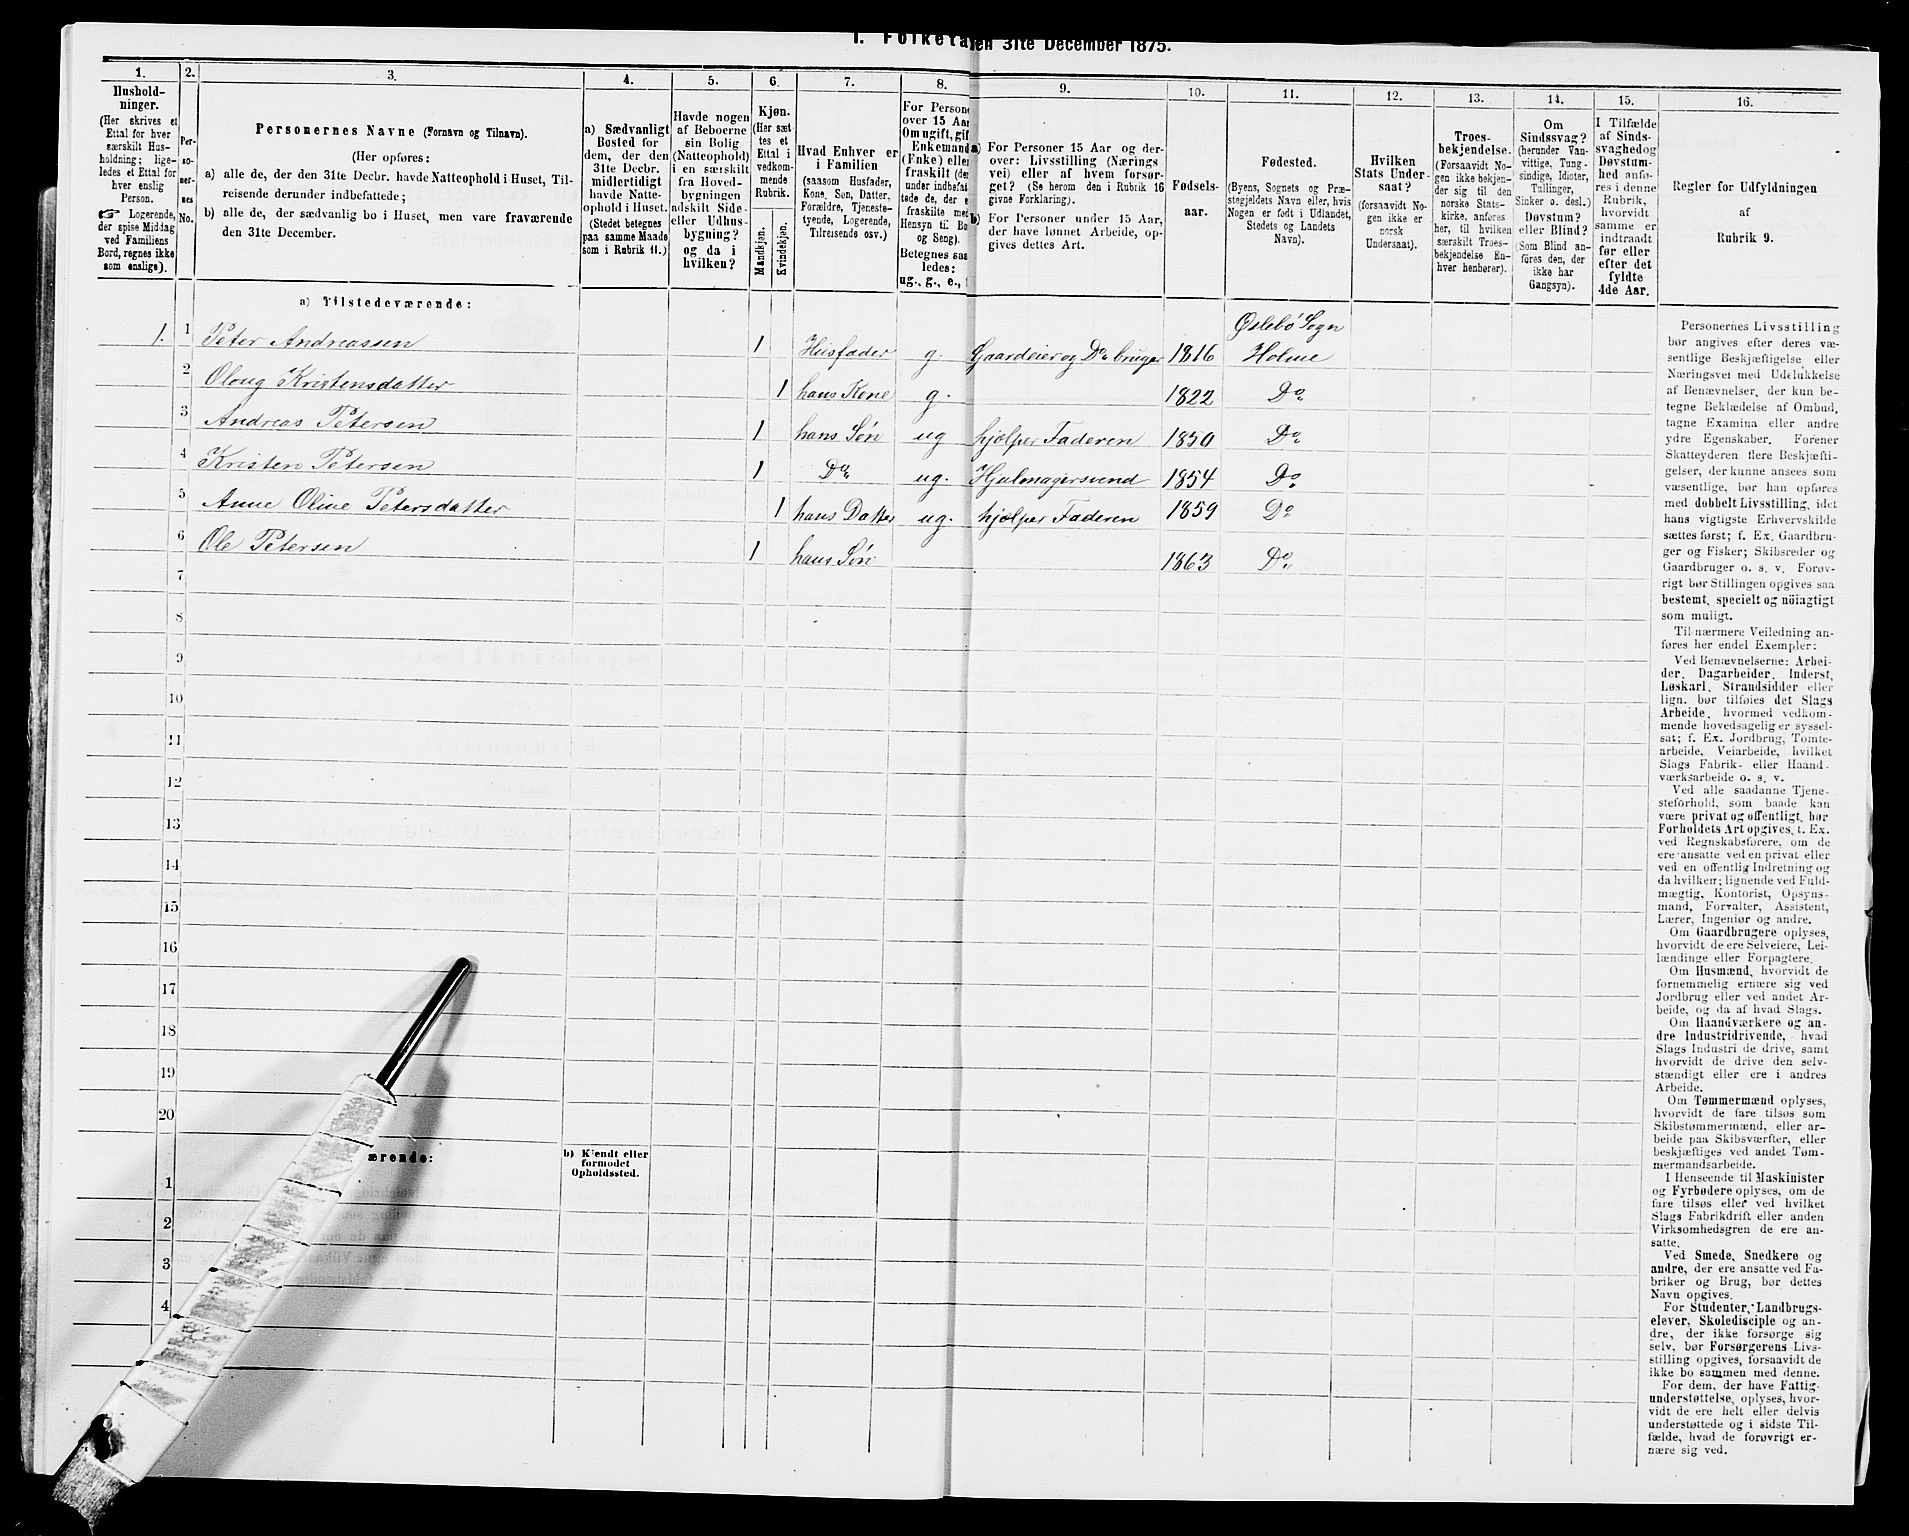 1. Folketallet 31te December 1875.
1. 2. 3. 4. 5. 6. 7. 8. 9. 10. 11. 12. 13. 14. 15. 16.
Hushold-
ninger.
(Her skrives et
Ettal for hver
særskilt Hus-
holdning; lige-
ledes et Ettal for
hver enslig
Person.
☞ Logerende,
der spise Middag
ved Familiens
Bord, regnes ikke
som enslige).
Per-
so-
ner-
nes
No.
Personernes Navne (Fornavn og Tilnavn).
(Her opføres:
a) alle de, der den 31te Decbr. havde Natteophold i Huset, Til-
reisende derunder indbefattede;
b) alle de, der sædvanlig bo i Huset, men vare fraværende
den 31te December.
a) Sædvanligt
Bosted for
dem, der den
31te Decbr.
midlertidigt
havde Natte-
ophold i Huset.
(Stedet betegnes
paa samme Maade
som i Rubrik 11.)
Havde nogen
af Beboerne
sin Bolig
(Natteophold)
i en særskilt
fra Hoved-
bygningen
adskilt Side-
eller Udhus-
bygning?
og da i
hvilken?
Kjøn.
(Her sæt-
tes et
Ettal i
vedkom-
mende
Rubrik.
Mandkjøn.
Kvindekjøn.
Hvad Enhver er
i Familien
(saasom Husfader,
Kone, Søn, Datter,
Forældre, Tjeneste-
tyende, Logerende,
Tilreisende osv.)
For Persone
over 15 Aar
Om ugift, gif
Enkemand
(Enke) eller
fraskilt (der
under indbefat
tede de, der e
fraskilte med
Hensyn til Bo
og Seng).
Betegnes saa
ledes:
ug., g., e.,
a) For Personer 15 Aar og der-
over: Livsstilling (Nærings
vei) eller af hvem forsør-
get? (Se herom den i Rubrik 16
givne Forklaring).
b) For Personer under 15 Aar,
der have lønnet Arbeide, op-
gives dettes Art.
Fødsels-
aar.
Fødested.
(Byens, Sognets og Præ-
stegjeldets Navn eller, hvis
Nogen er født i Udlandet,
Stedets og Landets
Navn).
Hvilken
Stats Under-
saat?
(forsaavidt No-
gen ikke er
norsk
Undersaat).
Troes-
bekjendelse.
(Forsaavidt No-
gen ikke bekjen-
der sig til den
norske Stats-
kirke, anføres
her, til hvilken
særskilt Troes-
bekjendelse En-
hver henhører).
Om
Sindssvag?
(herunder Van-
vittige, Tung-
sindige, Idioter,
Tullinger,
Sinker o. desl.)
Døvstum?
eller Blind?
(Som Blind an-
føres den, der
ikke har
Gangsyn).
I Tilfælde
af Sinds-
svaghed og
Døvstum-
hed anfø-
res i denne
Rubrik,
hvorvidt
samme er
indtraadt
før eller
efter det
fyldte
4de Aar.
Regler for Udfyldningen
af
Rubrik 9.
a) Tilstedeværende:
Øslebø Sogn
1. 1 Peter Andreassen 1 Husfader g. Gaardeier og Do bruger 1816 Holme
2 Oloug Kristensdatter 1 hans Kone g. 1822 Do
3 Andreas Petersen 1 hans Søn ug hjælper Faderen 1850 Do
4 Kristen Petersen 1 Do ug. Hjulmagersvend 1854 Do
5 Anne Oline Petersdatter 1 hans Datter ug. hjælper Faderen 1859 Do
6 Ole Petersen 1 hans Søn 1863 Do
7
8
9
10
11
12
13
14
15
16
17
18
19
20
ærende: b) Kjendt eller
formodet
Opholdssted.
1
2
3
4
Personernes Livsstilling
bør angives efter deres væ-
sentlige Beskjæftigelse eller
Næringsvei med Udelukkelse
af Benævnelser, der kun be-
tegne Beklædelse af Ombud,
tagne Examina eller andre
ydre Egenskaber. Forener
Skatteyderen flere Beskjæfti-
gelser, der kunne ansees som
væsentlige, bør han opføres
med dobbelt Livsstilling, idet
hans vigtigste Erhvervskilde
sættes først; f. Ex. Gaardbru-
ger og Fisker; Skibsreder og
Gaardbruger o. s. v. Forøv-
rigt bør Stillingen opgives saa
bestemt, specielt og nöiagtigt
som muligt.
Til nærmere Veiledning an-
føres her endel Exempler:
Ved Benævnelserne: Arbei-
der, Dagarbeider, Inderst,
Løskarl, Strandsidder eller
lign. bør tilføies det Slags
Arbeide, hvormed vedkom-
mende hovedsagelig er syssel-
sat; f. Ex. Jordbrug, Tomte-
arbeide, Veiarbeide, hvilket
Slags Fabrik- eller Haand-
værksarbeide o. s. v.
Ved alle saadanne Tjene-
steforhold, som baade kan
være privat og offentligt, bør
Forholdets Art opgives, t. Ex.
ved Regnskabsførere, om de
ere ansatte ved en privat eller
ved en offentlig Indretning og
da hvilken; lignende ved Fuld-
mægtig, Kontorist, Opsyns-
mand, Forvalter, Assistent,
Lærer, Ingeniør og andre.
Om Gaardbrugere oplyses,
hvorvidt de ere Selveiere, Lei-
lændinge eller Forpagtere.
Om Husmænd, hvorvidt de
fornemmelig ernære sig ved
Jordbrug eller ved andet Ar-
beide, og da af hvad Slags.
Om Haandværkere og an-
dre Industridrivende, hvad
Slags Industri de drive, samt
hvorvidt de drive den selv-
stændigt eller ere i andres
Arbeide.
Om Tømmermænd oplyses,
hvorvidt de fare tilsøs som
Skibstømmermænd, eller ar-
beide paa Skibsværfter, eller
beskjæftiges ved andet Tøm-
mermandsarbeide.
I Henseende til Maskinister
og Fyrbødere oplyses, om de
fare tilsøs eller ved hvilket
Slags Fabrikdrift eller anden
Virksomhedsgren de ere an-
satte.
Ved Smede, Snedkere og
andre, der ere ansatte ved Fa-
briker og Brug, bør dettes
Navn opgives.
For Studenter, Landbrugs-
elever, Skoledisciple og an-
dre, der ikke forsørge sig
selv, bør Forsørgerens Livs-
stilling opgives, forsaavidt de
ikke bo sammen med denne.
For dem, der have Fattig-
understøttelse, oplyses, hvor-
vidt de ere helt eller delvis
understøttede og i sidste Til-
fælde, hvad de forøvrigt er-
nære sig ved.